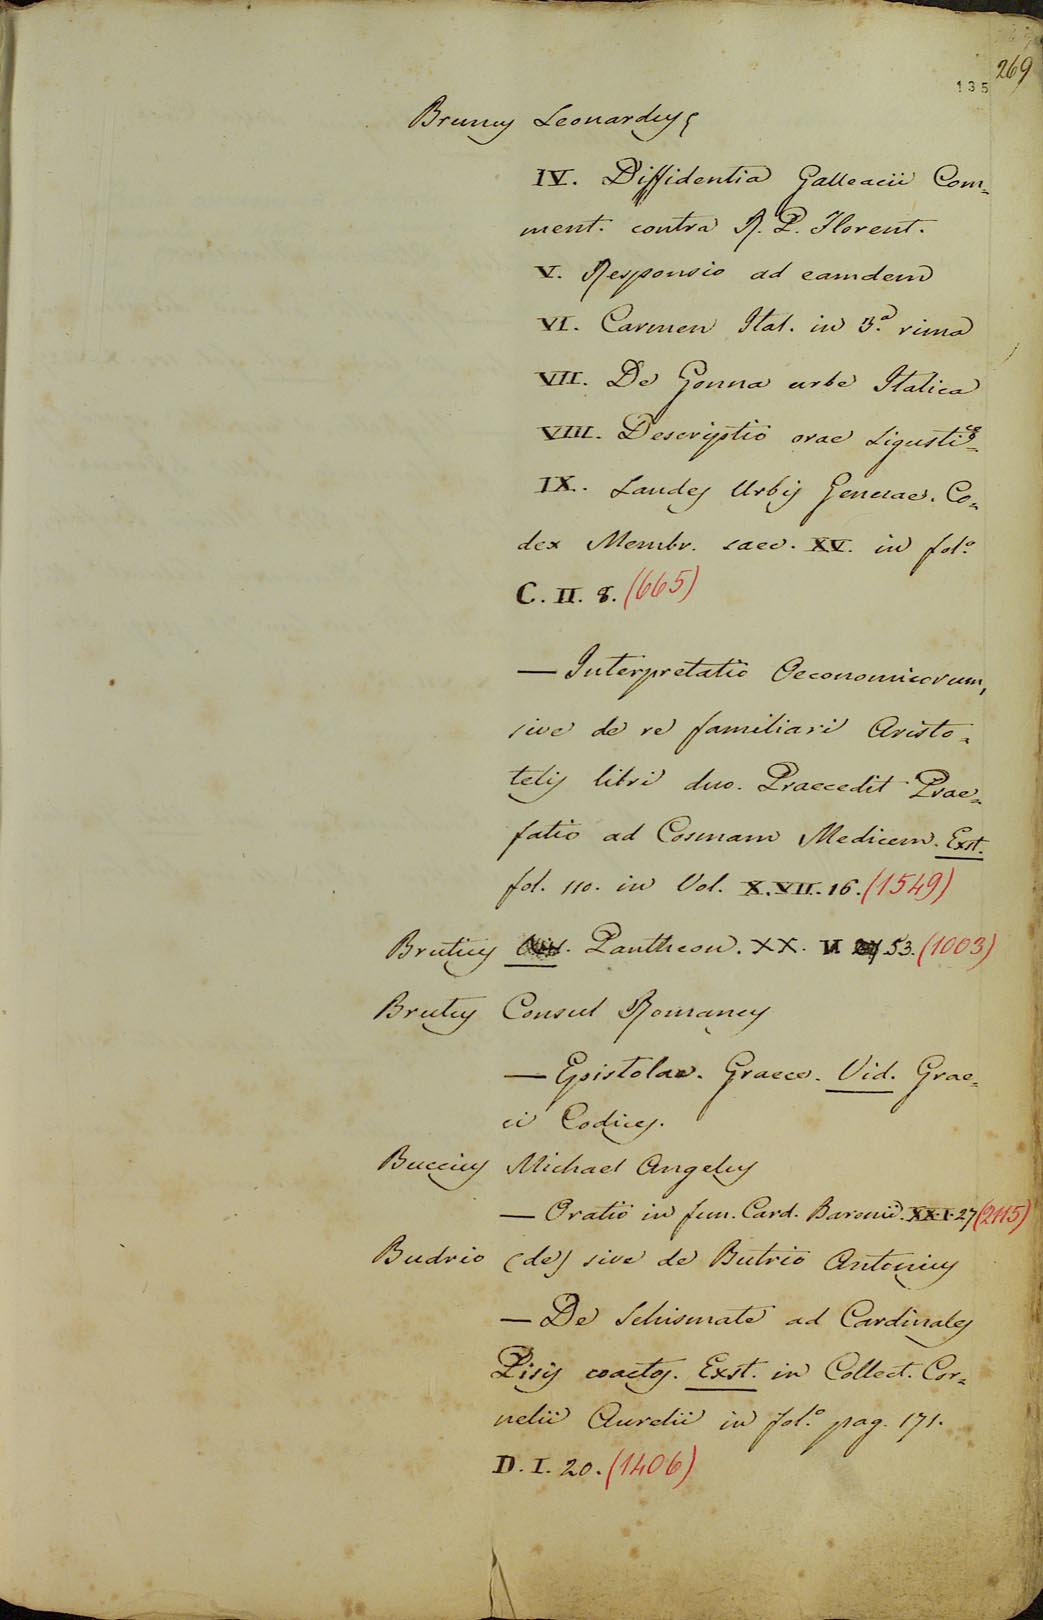 269
135
Brunus Leonardus
IV. Diffidentia Galleacii Com-
ment. contra R. P. Florent.
V. Responsio ad eamdem
VI. Carmen Ital. in 3.a rima
VII. De Gonna urbe Italica
VIII. Descriptio orae Ligustic
IX. Laudes Urbis Genuae. Co-
dex Membr. saec. XV. in fol.o
C. II. 8. (665)
— Interpretatio Oeconomicorum,
sive de re familiari Aristo-
telis libri duo. Praecedit Prae-
fatio ad Cosmam Medicem. Exst.
fol. 110. in Vol. X. VII. 16. (1549)
Brutius Pantheon. XX. VI 53. (1003)
Brutus Consul Romanus
— Epistolae. Graece. Vid. Grae-
ci Codices.
Buccius Michael Angelus
— Oratio in fun. Card. Baronii. XXI. 27 (2115)
Budrio (de) sive de Butrio Antonius
— De Schismate ad Cardinales
Pisis coactos. Exst. in Collect. Cor-
nelii Aurelii in fol.o pag. 171.
D. I. 20. (1406)